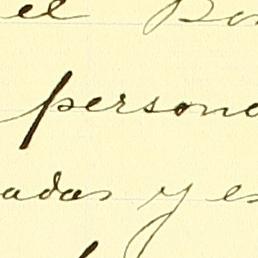 el Bo
persona
adas y es